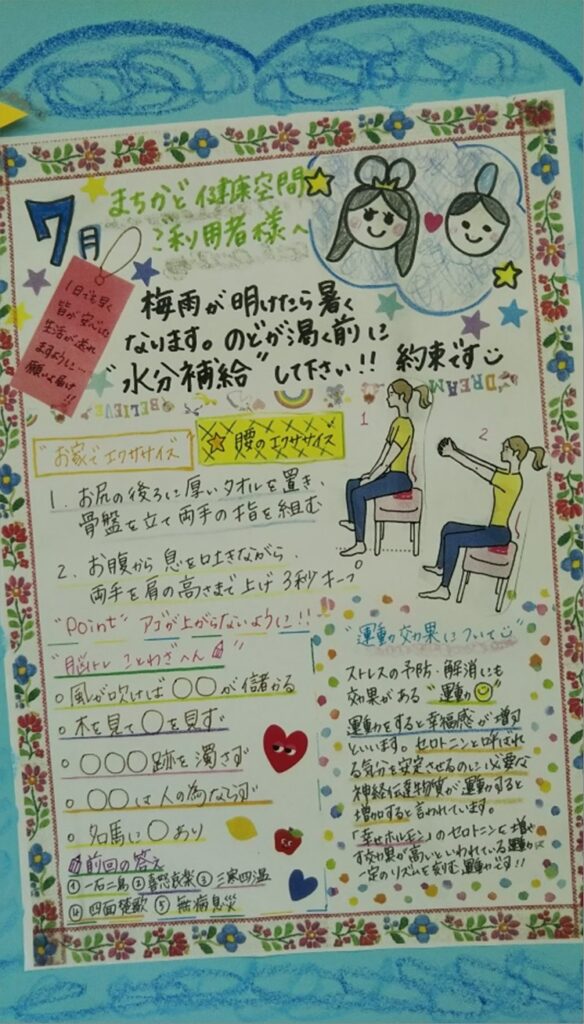 7月
まちかど健康空間
ご利用者様へ
1日でも早く
皆が安心な
生活が送れ
ますように…
願いよ届け!!
梅雨が明けたら暑く
なります。のどが渇く前に
"水分補給"して下さい!! 約束です
DREAM
BELIEVE
"お家でエクササイズ"
☆腰のエクササイズ
1
2
1. お尻の後ろに厚いタオルを置き、
骨盤を立て両手の指を組む
2. お腹から息を吐きながら、
両手を肩の高さまで上げ3秒キープ
"Point" アゴが上がらないように!!
"脳トレ ことわざへん"
○風が吹けば〇〇が儲かる
○木を見て〇を見ず
○〇〇〇跡を濁さず
○〇〇は人の為ならず
○名馬に〇あり
前回の答え
①一石二鳥②喜怒哀楽③三寒四温
④四面楚歌⑤無病息災
"運動効果について"
ストレスの予防・解消にも
効果がある"運動"
運動をすると幸福感が増す
といいます。セロトニンと呼ばれ
る気分を安定させるのに必要な
神経伝達物質が運動すると
増加すると言われています。
「幸せホルモン」のセロトニンを増や
す効果が高いといわれている運動は
一定のリズムを刻む運動です!!